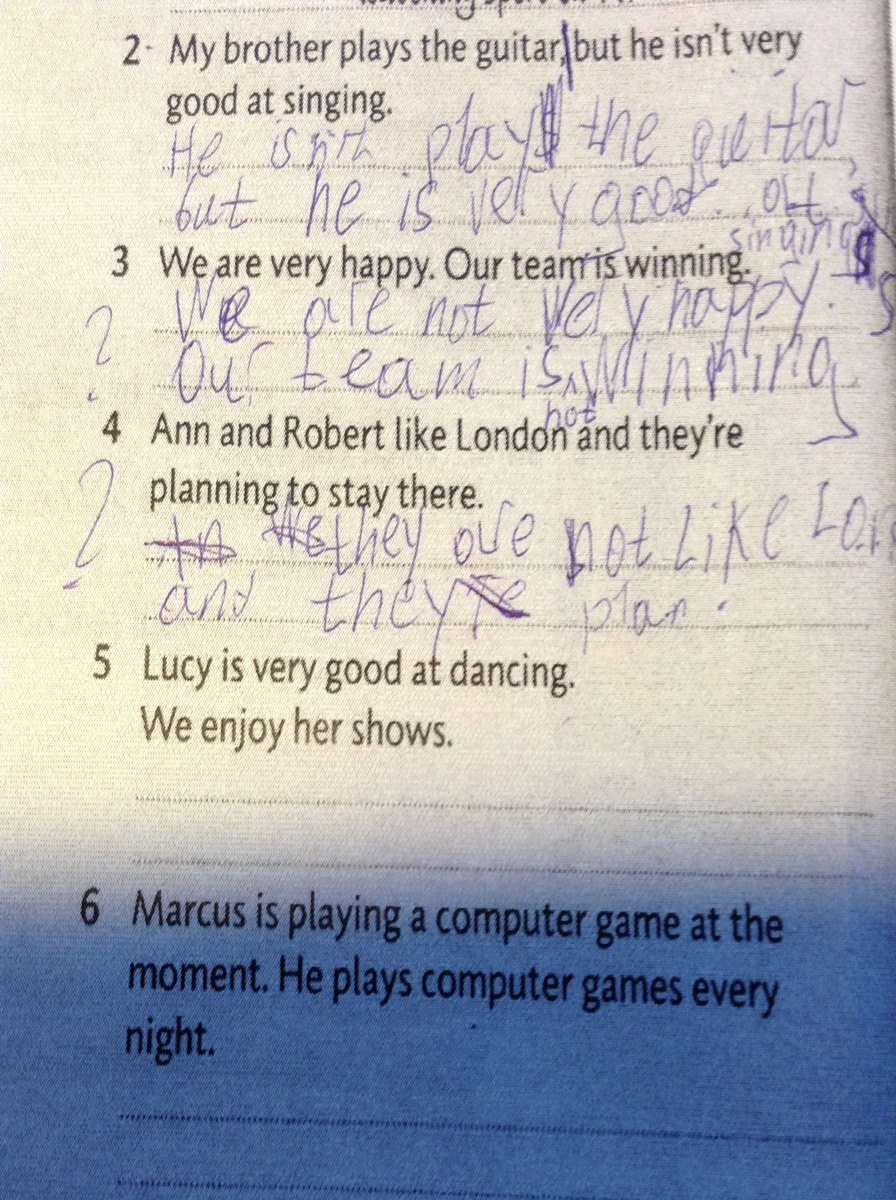 2 My brother plays the guitar, but he isn't very
good at singing.
He isn't play the guitar
but he is very good at
singing
3 We are very happy. Our team is winning.
We are not very happy.
? Our team is winning
not
4 Ann and Robert like London and they're
planning to stay there.
? they are not like Lon
and they plan.
5 Lucy is very good at dancing.
We enjoy her shows.
6 Marcus is playing a computer game at the
moment. He plays computer games every
night.